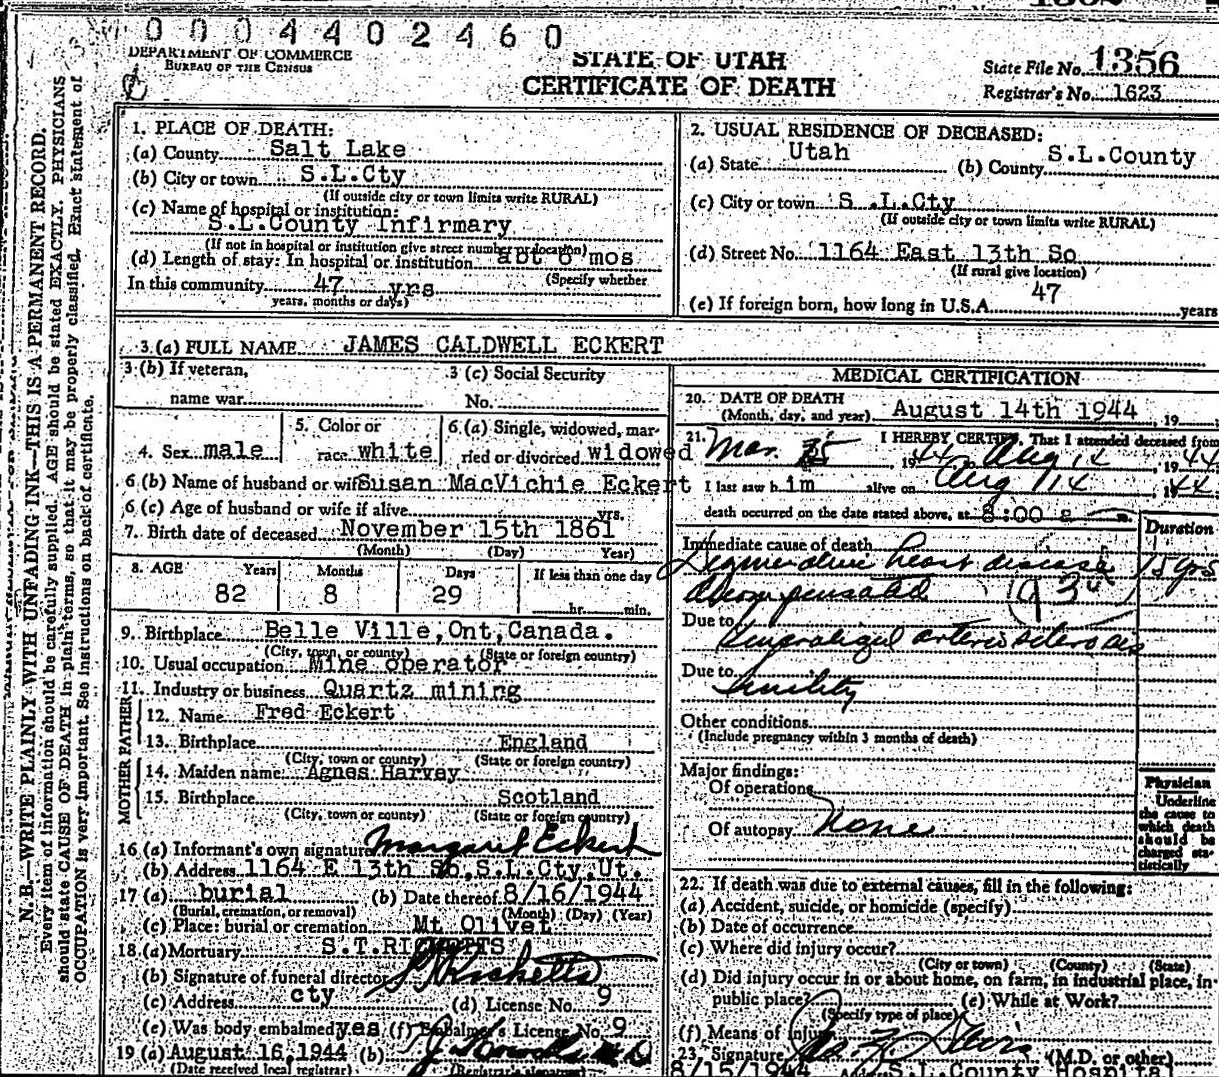 0 0 0 4 4 0 2 4 6 0
DEPARTMENT OF COMMERCE
BUREAU OF THE CENSUS
STATE OF UTAH
CERTIFICATE OF DEATH
State File No. 1356
Registrar's No. 1623
N. B.—WRITE PLAINLY WITH UNFADING INK—THIS IS A PERMANENT RECORD.
Every item of information should be carefully supplied. AGE should be stated EXACTLY. PHYSICIANS
should state CAUSE OF DEATH in plain terms, so that it may be properly classified. Exact statement of
OCCUPATION is very important. See instructions on back of certificate.
1. PLACE OF DEATH:
(a) County Salt Lake
(b) City or town S.L.Cty
(If outside city or town limits write RURAL)
(c) Name of hospital or institution:
S.L.County Infirmary
(If not in hospital or institution give street number or location)
(d) Length of stay: In hospital or institution abt 6 mos
(Specify whether
In this community 47 yrs
years, months or days)
2. USUAL RESIDENCE OF DECEASED:
(a) State Utah (b) County S.L.County
(c) City or town S.L.Cty
(If outside city or town limits write RURAL)
(d) Street No. 1164 East 13th So
(If rural give location)
(e) If foreign born, how long in U.S.A. 47 years
3 (a) FULL NAME JAMES CALDWELL ECKERT
3 (b) If veteran,
name war
3 (c) Social Security
No.
4. Sex male
5. Color or
race white
6. (a) Single, widowed, mar-
ried or divorced widowed
6 (b) Name of husband or wife Susan MacVichie Eckert
6 (c) Age of husband or wife if alive yrs.
7. Birth date of deceased November 15th 1861
(Month) (Day) Year)
8. AGE Years Months Days If less than one day
82 8 29 hr. min.
9. Birthplace Belle Ville,Ont,Canada.
(City, town, or county) (State or foreign country)
10. Usual occupation Mine operator
11. Industry or business Quartz mining
FATHER
12. Name Fred Eckert
13. Birthplace England
(City, town or county) (State or foreign country)
MOTHER
14. Maiden name Agnes Harvey
15. Birthplace Scotland
(City, town or county) (State or foreign country)
16 (a) Informant's own signature Margaret Eckert
(b) Address 1164 E 13th So,S.L.Cty,Ut.
17 (a) burial (b) Date thereof 8/16/1944
(Burial, cremation, or removal) (Month) (Day) (Year)
(c) Place: burial or cremation Mt Olivet
18. (a) Mortuary S.T.RICKETTS
(b) Signature of funeral director S.T. Ricketts
(c) Address cty (d) License No. 9
(e) Was body embalmed yes (f) Embalmer's License No. 9
19 (a) August 16,1944 (b)
(Date received local registrar) (Registrar's signature)
MEDICAL CERTIFICATION
20. DATE OF DEATH
(Month, day, and year) August 14th 1944, 19
21. I HEREBY CERTIFY, That I attended deceased from
Mar. 1944 Aug 14, 1944
I last saw him alive on Aug 14 1944
death occurred on the date stated above, at 8:00 a m.
Duration
Immediate cause of death
Degenerative heart disease 15 yrs
decompensated
Due to
Generalized arteriosclerosis
Due to
Senility
Other conditions
(Include pregnancy within 3 months of death)
Major findings:
Of operations
Of autopsy None
Physician
Underline
the cause to
which death
should be
charged sta-
tistically
22. If death was due to external causes, fill in the following:
(a) Accident, suicide, or homicide (specify)
(b) Date of occurrence
(c) Where did injury occur?
(City or town) (County) (State)
(d) Did injury occur in or about home, on farm, in industrial place, in
public place? (e) While at Work?
(Specify type of place)
(f) Means of injury
23. Signature (M.D. or other)
8/15/1944 S.L.County Hospital